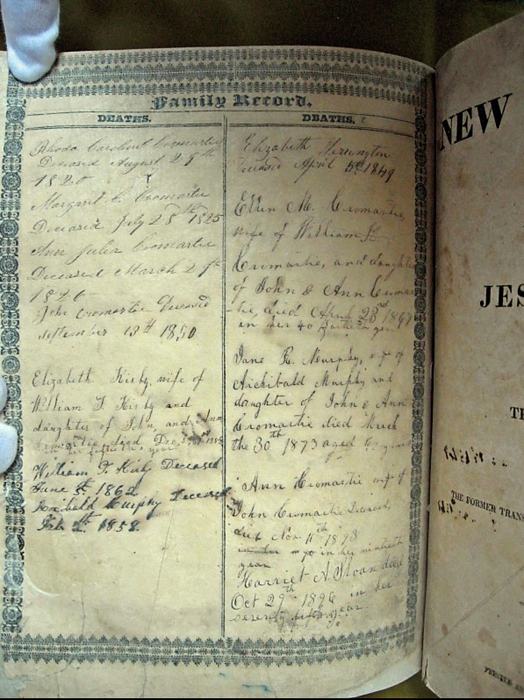 Family Record.
DEATHS.
Rhoda Caroline Cromartie
Deceased August 29th
1820
Margaret C Cromartie
Deceased July 28th 1825
Ann Julia Cromartie
Deceased March 29th
1826
John Cromartie Deceased
September 13th 1850
Elizabeth Kirby, wife of
William F Kirby and
daughter of John, and Ann
Cromartie died Dec
William F. Kirby Deceased
June 5th 1862
Archibald Murphy Deceased
Feb 2th 1858.
DEATHS.
Elizabeth
Deceased April 1849
Ellen Mc Cromartie,
wife of William
Cromartie, and daughter
of John & Ann Cromar
-tie, died April 28th
in her 40
Jane R. Murphy, wife of
Archibald Murphy and
daughter of John & Ann
Cromartie died March
the 30th 1873 aged
Ann Cromartie wife of
John Cromartie Deceased,
died Nov 11th 1878
in her
year
Harriet A. Sloan died
Oct 29th 1896 in her
seventy fifth year
NEW
JES
TH
THE FORMER TRANS